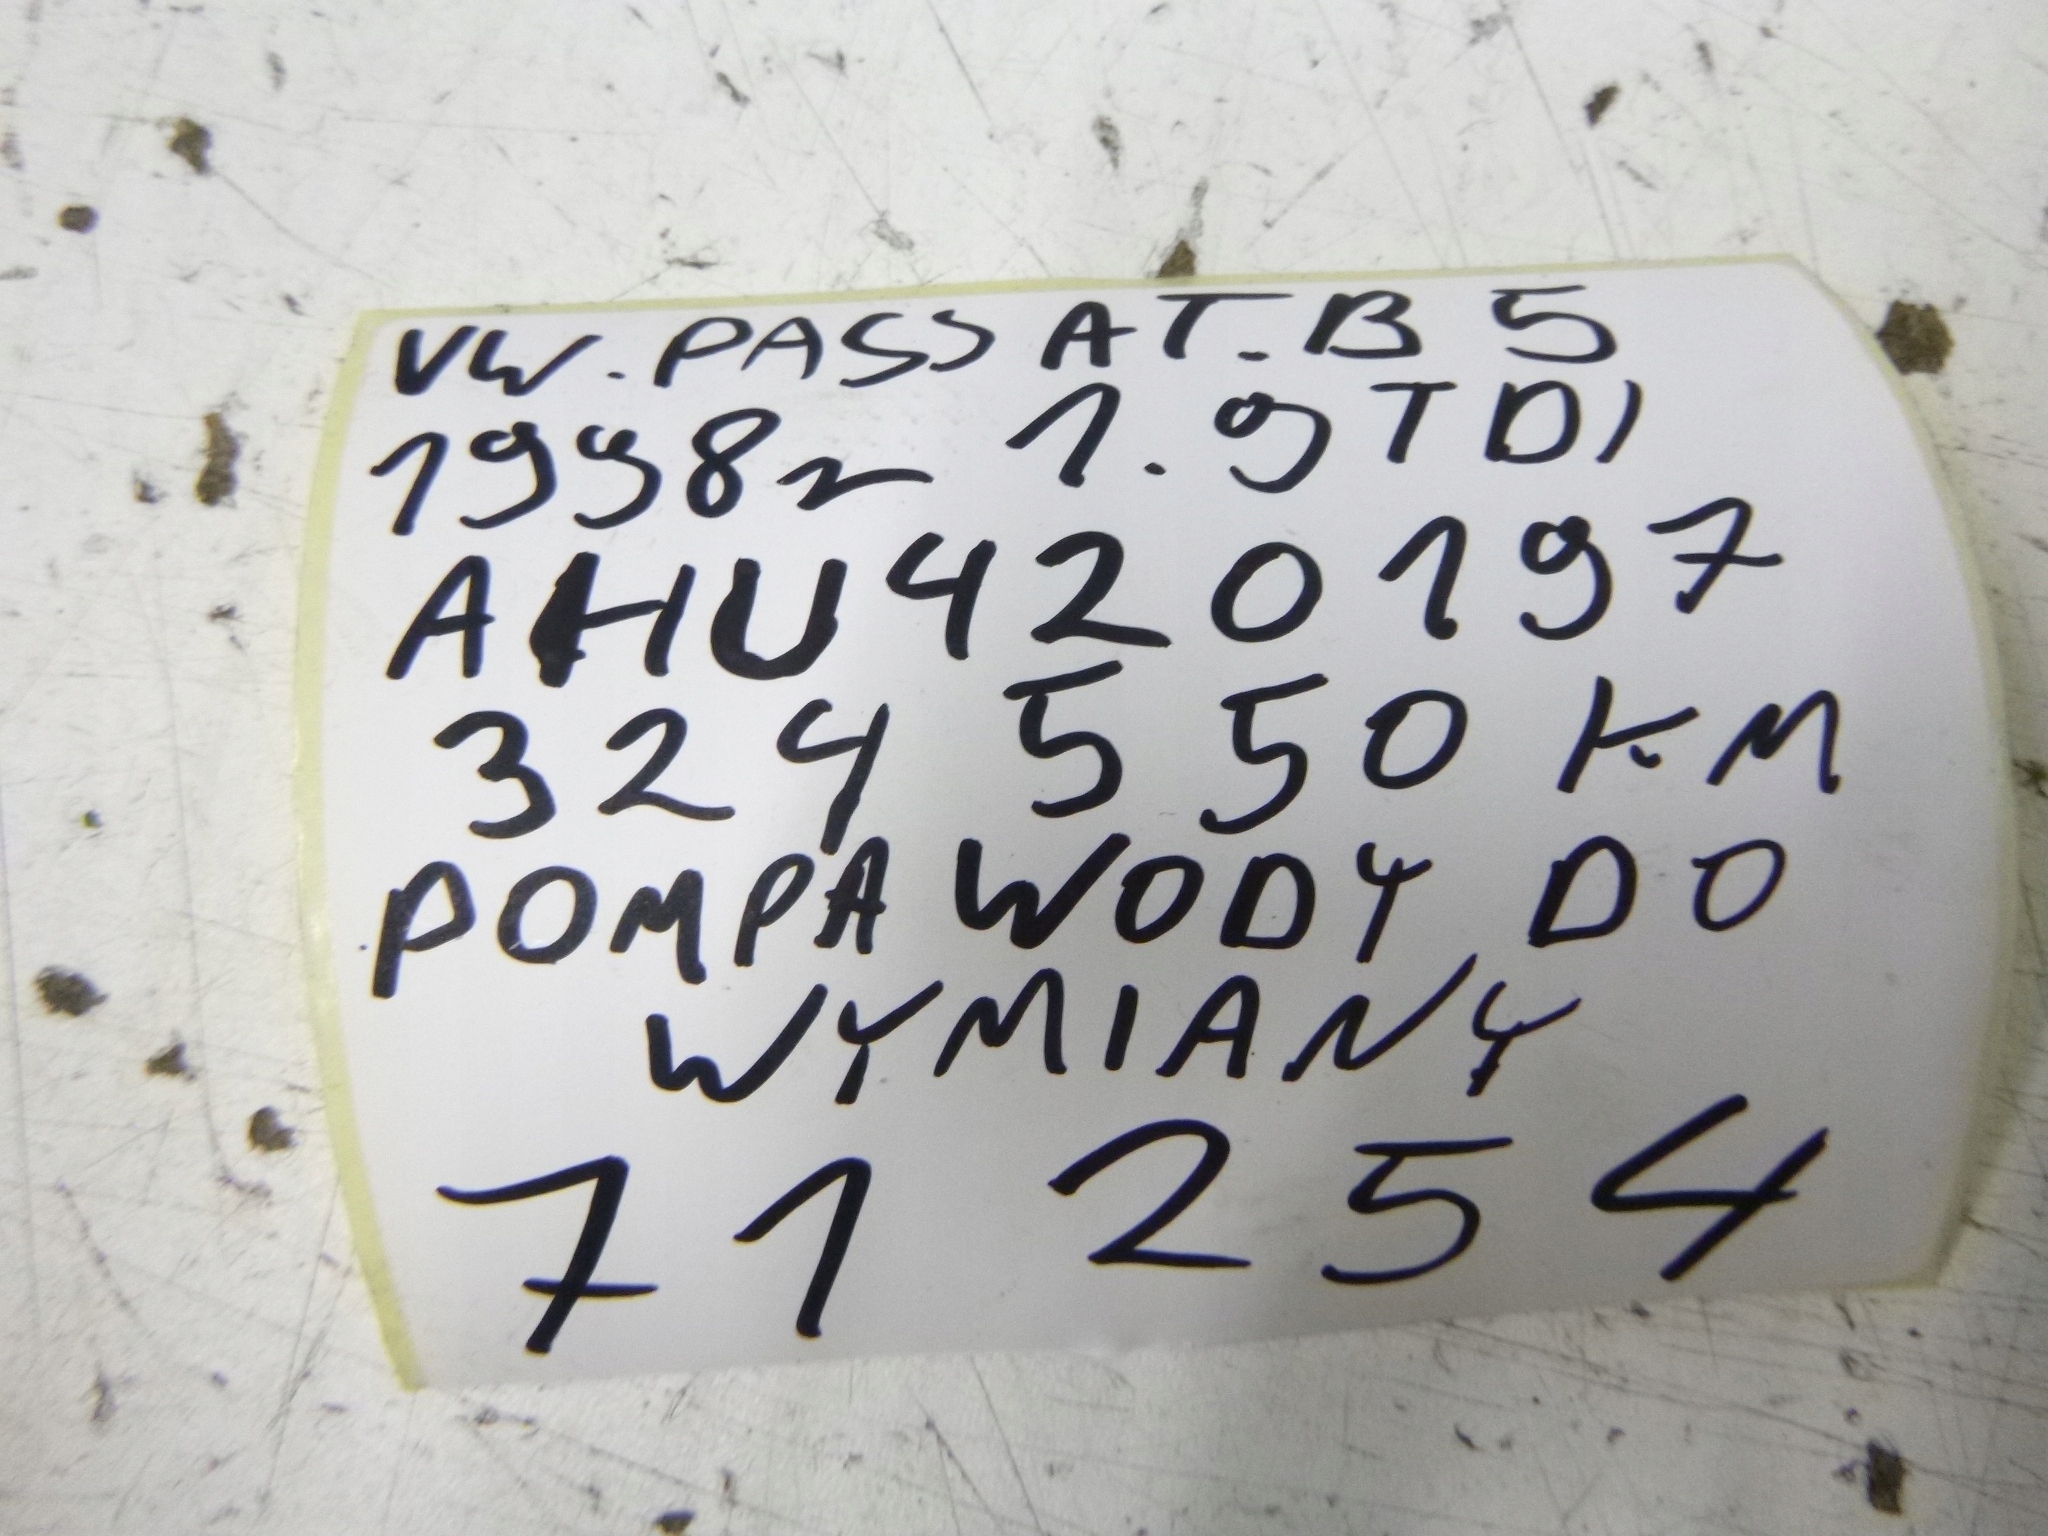 VW. PASSAT. B5
1998r 1.9TDI
AHU420197
324 550 KM
POMPA WODY DO
WYMIANY
71 254